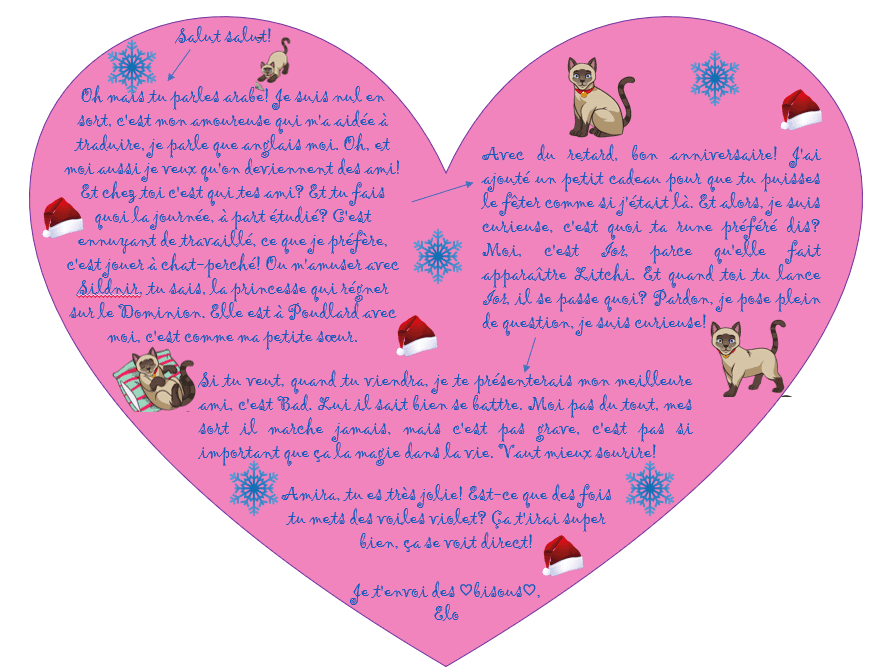 Salut salut!
Oh mais tu parles arabe! Je suis nul en
sort, c'est mon amoureuse qui m'a aidée à
traduire, je parle que anglais moi. Oh, et
moi aussi je veux qu'on deviennent des ami!
Et chez toi c'est qui tes ami? Et tu fais
quoi la journée, à part étudié? C'est
ennuyant de travaillé, ce que je préfère,
c'est jouer à chat-perché! Ou m'amuser avec
Sildnir, tu sais, la princesse qui régner
sur le Dominion. Elle est à Poudlard avec
moi, c'est comme ma petite sœur.
Avec du retard, bon anniversaire! J'ai
ajouté un petit cadeau pour que tu puisses
le fêter comme si j'était là. Et alors, je suis
curieuse, c'est quoi ta rune préféré dis?
Moi, c'est Ior, parce qu'elle fait
apparaître Litchi. Et quand toi tu lance
Ior, il se passe quoi? Pardon, je pose plein
de question, je suis curieuse!
Si tu veut, quand tu viendra, je te présenterais mon meilleure
ami, c'est Bad. Lui il sait bien se battre. Moi pas du tout, mes
sort il marche jamais, mais c'est pas grave, c'est pas si
important que ça la magie dans la vie. Vaut mieux sourire!
Amira, tu es très jolie! Est-ce que des fois
tu mets des voiles violet? Ça t'irai super
bien, ça se voit direct!
Je t'envoi des ♡bisous♡,
Elo